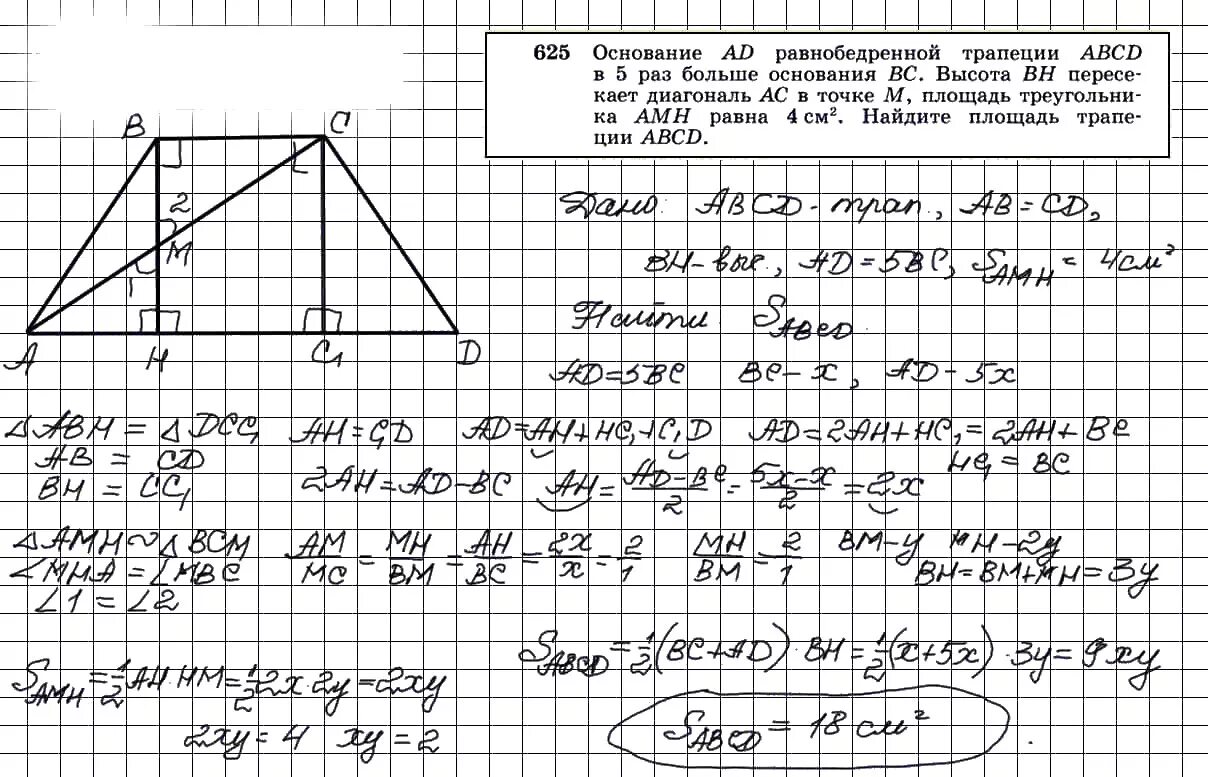 625 Основание AD равнобедренной трапеции ABCD
в 5 раз больше основания BC. Высота BH пересе-
кает диагональ AC в точке M, площадь треугольни-
ка AMH равна 4 см². Найдите площадь трапе-
ции ABCD.
B C
2
M
1
A H C₁ D
Дано: ABCD - трап., AB = CD,
BH - выс., AD = 5BC, S_AMH = 4 см²
Найти S_ABCD
AD = 5BC BC - x, AD - 5x
△ABH = △DCC₁ AH = C₁D AD = AH + HC₁ + C₁D AD = 2AH + HC₁ = 2AH + BC
AB = CD HC₁ = BC
BH = CC₁ 2AH = AD - BC AH = (AD - BC)/2 = (5x - x)/2 = 2x
△AMH ~ △BCM AM/MC = MH/BM = AH/BC = 2x/x = 2/1 MH/BM = 2/1 BM - y MH - 2y
∠MHA = ∠MBC BH = BM + MH = 3y
∠1 = ∠2
S_ABCD = 1/2 (BC + AD) · BH = 1/2 (x + 5x) · 3y = 9xy
S_AMH = 1/2 AH · HM = 1/2 2x · 2y = 2xy
2xy = 4 xy = 2
S_ABCD = 18 см²